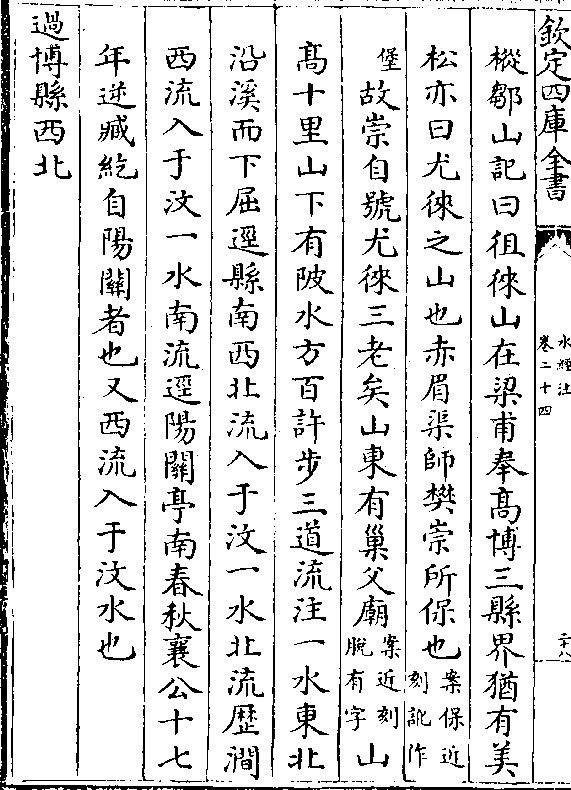 欽定四庫全書
水經注
卷二十四
二十八
樅鄒山記曰徂徠山在梁甫奉髙博三縣界猶有美
松亦曰尤徠之山也赤眉渠師樊崇所保也案保近刻訛作
堡故崇自號尤徠三老矣山東有巢父廟案近刻脫有字山
髙十里山下有陂水方百許步三道流注一水東北
沿溪而下屈逕縣南西北流入于汶一水北流歴澗
西流入于汶一水南流逕陽關亭南春秋襄公十七
年逆臧紇自陽關者也又西流入于汶水也
過博縣西北